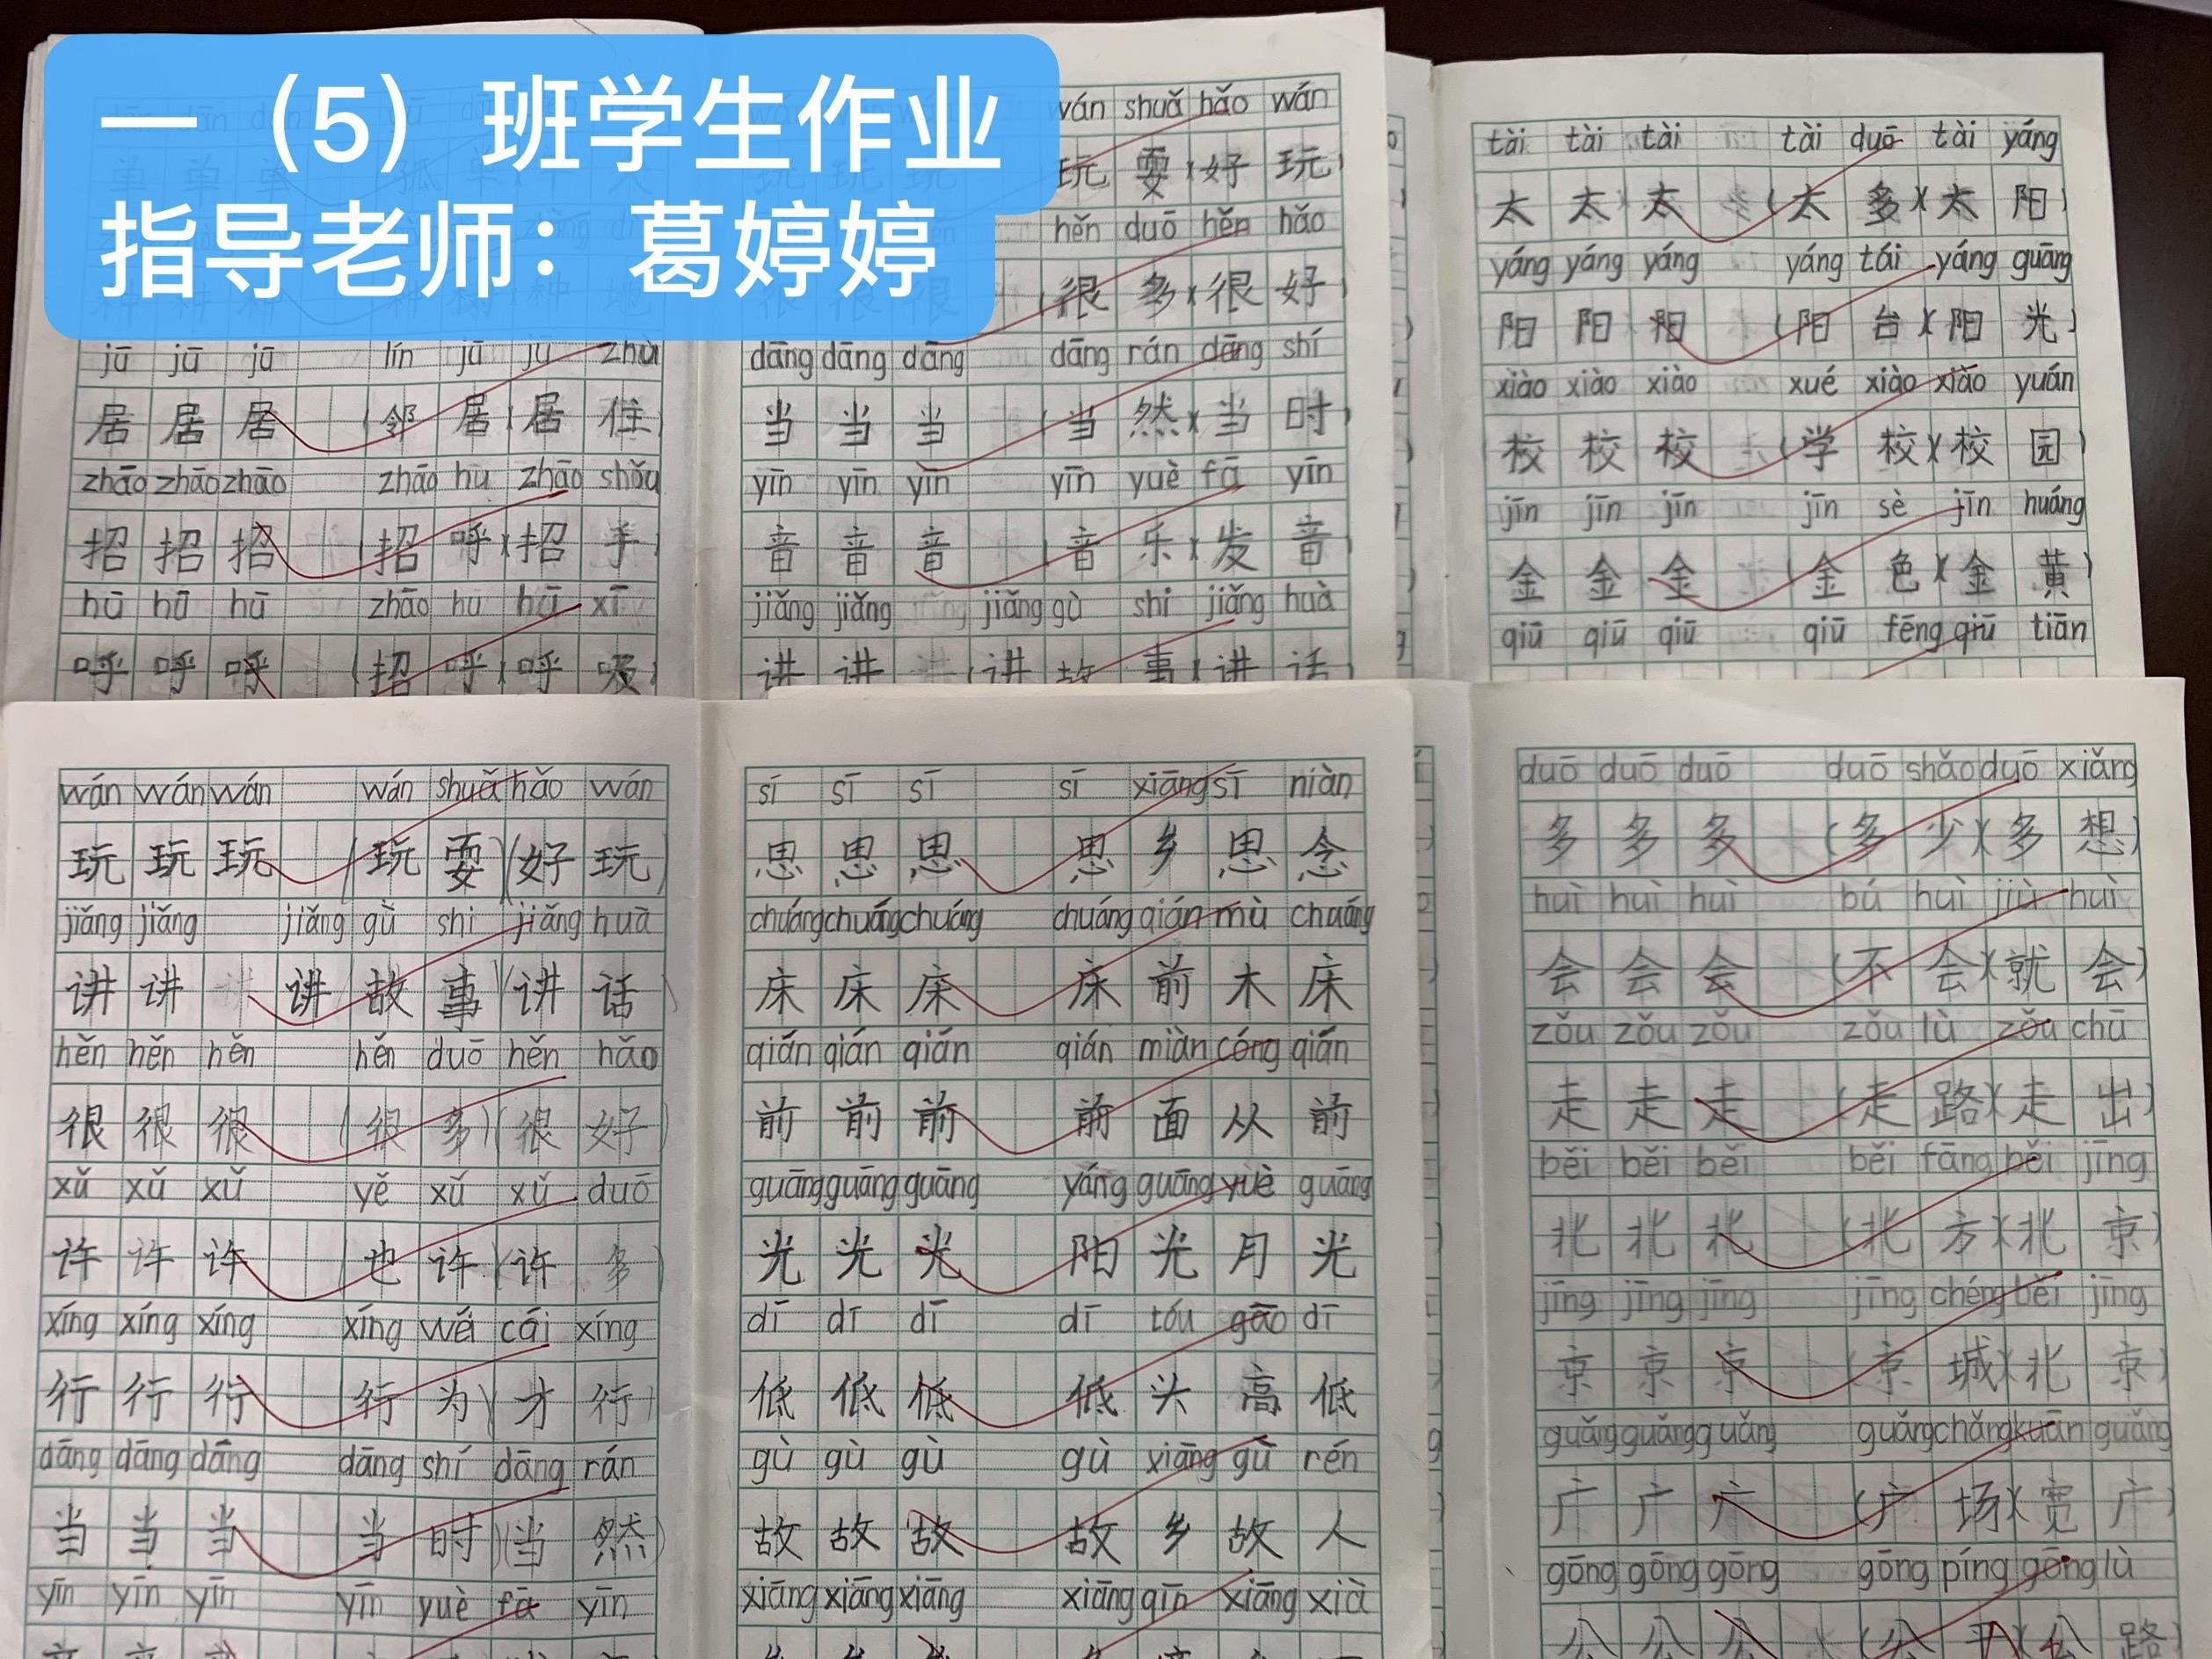 一（5）班学生作业
指导老师：葛婷婷
jū jū jū lín jū jū zhù
居 居 居 (邻 居)(居 住
zhāo zhāo zhāo zhāo hu zhāo shǒu
招 招 招 (招 呼)(招 手)
hū hū hū zhāo hu hū xī
呼 呼 呼 (招 呼)(呼 吸)
wán shuǎ hǎo wán
玩 耍)(好 玩)
hěn duō hěn hǎo
(很 多)(很 好)
dāng dāng dāng dāng rán dāng shí
当 当 当 (当 然)(当 时)
yīn yīn yīn yīn yuè fā yīn
音 音 音 (音 乐)(发 音)
jiǎng jiǎng jiǎng gù shi jiǎng huà
讲 讲 (讲 故 事)(讲 话
tài tài tài tài duō tài yáng
太 太 太 (太 多)(太 阳)
yáng yáng yáng yáng tái yáng guāng
阳 阳 阳 (阳 台)(阳 光)
xiào xiào xiào xué xiào xiào yuán
校 校 校 (学 校)(校 园)
jīn jīn jīn jīn sè jīn huáng
金 金 金 (金 色)(金 黄)
qiū qiū qiū qiū fēng qiū tiān
wán wán wán wán shuǎ hǎo wán
玩 玩 玩 (玩 耍)(好 玩)
jiǎng jiǎng jiǎng gù shi jiǎng huà
讲 讲 讲 故 事)(讲 话)
hěn hěn hěn hěn duō hěn hǎo
很 很 很 (很 多)(很 好)
xǔ xǔ xǔ yě xǔ xǔ duō
许 许 许 (也 许)(许 多)
xíng xíng xíng xíng wéi cái xíng
行 行 行 (行 为)(才 行)
dāng dāng dāng dāng shí dāng rán
当 当 当 (当 时)(当 然)
yīn yīn yīn yīn yuè fā yīn
sī sī sī sī xiāng sī niàn
思 思 思 思 乡 思 念
chuáng chuáng chuáng chuáng qián mù chuáng
床 床 床 床 前 木 床
qián qián qián qián miàn cóng qián
前 前 前 前 面 从 前
guāng guāng guāng yáng guāng yuè guāng
光 光 光 阳 光 月 光
dī dī dī dī tóu gāo dī
低 低 低 低 头 高 低
gù gù gù gù xiāng gù rén
故 故 故 故 乡 故 人
xiāng xiāng xiāng xiāng qīn xiāng xià
duō duō duō duō shǎo duō xiǎng
多 多 多 (多 少)(多 想)
huì huì huì bú huì jiù huì
会 会 会 (不 会)(就 会)
zǒu zǒu zǒu zǒu lù zǒu chū
走 走 走 (走 路)(走 出)
běi běi běi běi fāng běi jīng
北 北 北 (北 方)(北 京)
jīng jīng jīng jīng chéng běi jīng
京 京 京 (京 城)(北 京)
guǎng guǎng guǎng guǎng chǎng kuān guǎng
广 广 广 (广 场)(宽 广)
gōng gōng gōng gōng píng gōng lù
公 公 公 (公 平)(公 路